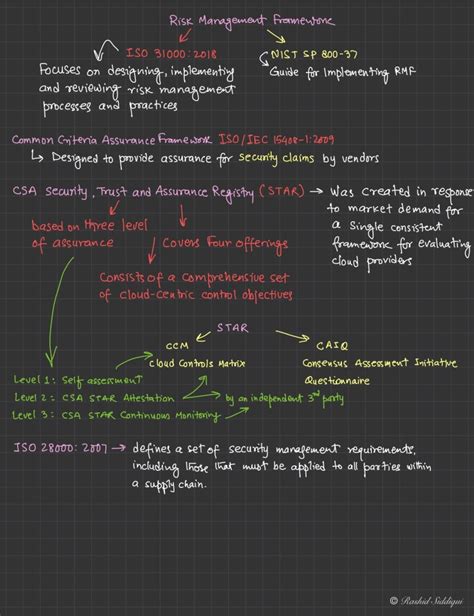 Risk Management Framework
ISO 31000:2018
NIST SP 800-37
Focuses on designing, implementiy
and reviewing risk management
processes and practices
Guide for Implementing RMF
Common Criteria Assurance Framework ISO/IEC 15408-1:2009
Designed to provide assurance for security claims by vendors
CSA Security, Trust and Assurance Registry (STAR)
Was created in response
to market demand for
a single consistent
framework for evaluating
cloud providers
based on three level
of assurance
Covers Four Offerings
Consists of a comprehensive set
of cloud-centric control objectives
STAR
CCM
Cloud Controls Matrix
CAIQ
Consensus Assessment Initiative
Questionnaire
Level 1: Self assessment
Level 2: CSA STAR Attestation
by an independent 3rd party
Level 3: CSA STAR Continuous Monitoring
ISO 28000:2007
defines a set of security management requirements,
including those that must be applied to all parties within
a supply chain.
© Rashid Siddiqui